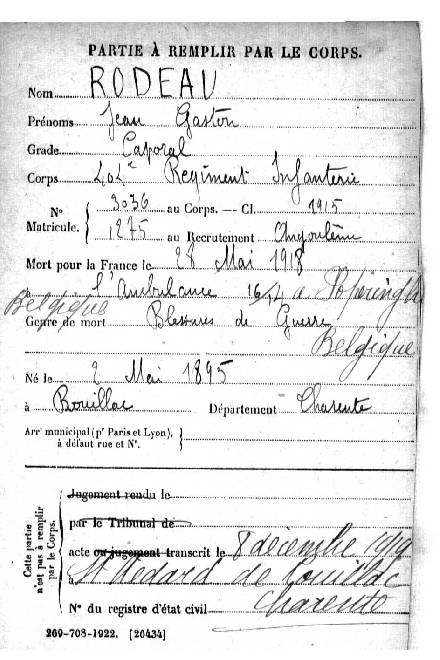 PARTIE À REMPLIR PAR LE CORPS.
Nom RODEAU
Prénoms Jean Gaston
Grade Caporal
Corps 402e Régiment Infanterie
N° Matricule. { 3036 au Corps. — Cl. 1915
1275 au Recrutement Angoulême
Mort pour la France le 28 Mai 1918
à l'Ambulance 16/2 a
Belgique
Genre de mort Blessures de Guerre
Belgique
Né le 2 Mai 1895
à Rouillac Département Charente
Arrt municipal (pr Paris et Lyon), à défaut rue et N°. }
Cette partie n'est pas à remplir par le Corps.
Jugement rendu le
par le Tribunal de
acte ou jugement transcrit le 8 décembre 1919
à St Médard de Rouillac
Charente
N° du registre d'état civil
269-708-1922. [26434]